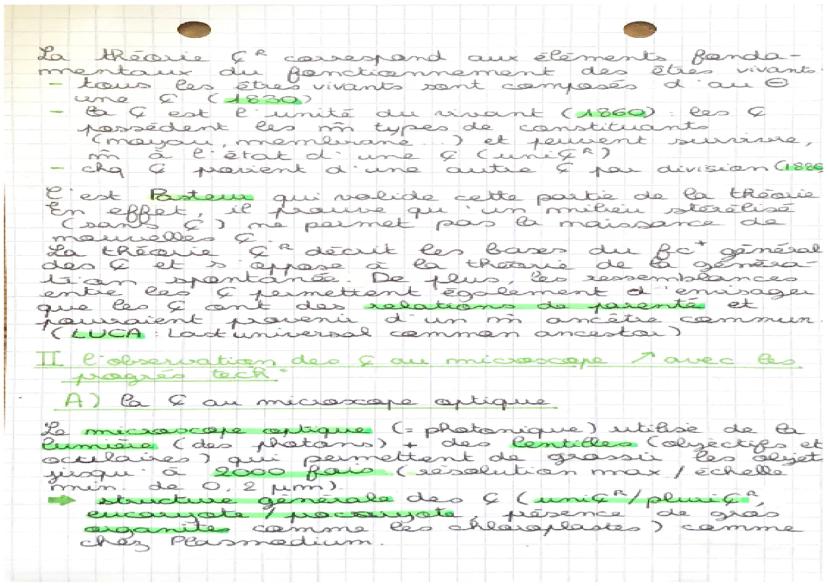 La théorie Çᴿ correspond aux éléments fonda-
mentaux du fonctionnement des êtres vivants.
- tous les êtres vivants sont composés d'au ⊖
une Ç (1830)
- la Ç est l'unité du vivant (1860) : les Ç
possèdent les m̄ types de constituants
(noyau, membrane...) et peuvent survivre,
m̄ à l'état d'une Ç (uniÇᴿ)
- chq Ç provient d'une autre Ç par division (188
C'est Pasteur qui valide cette partie de la théorie
En effet, il prouve qu'un milieu stérélisé
(sans Ç) ne permet pas la naissance de
nouvelles Ç.
La théorie Çᴿ décrit les bases du fc⁺ général
des Ç et s'oppose à la théorie de la généra-
tion spontanée. De plus, les ressemblances
entre les Ç permettent également d'envisager
que les Ç ont des relations de parenté et
pourraient provenir d'un m̄ ancêtre commun.
(LUCA : Last universal common ancestor)
II l'observation des Ç au microscope ↗ avec les
progrès tech°
A) la Ç au microscope optique
Le microscope optique (= photonique) utilise de la
lumière (des photons) + des lentilles (objectifs et
oculaires) qui permettent de grossir les objet
jusqu'à 2000 fois (résolution max / échelle
min. de 0,2 µm)
➡ structure générale des Ç (uniÇᴿ/pluriÇᴿ,
eucaryote / procaryote, présence de gros
organites comme les chloroplastes) comme
chez Plasmodium.